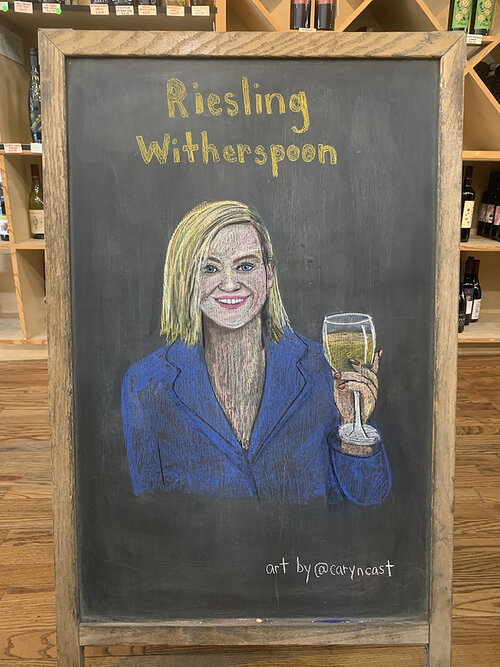 Riesling
Witherspoon
art by @caryncast